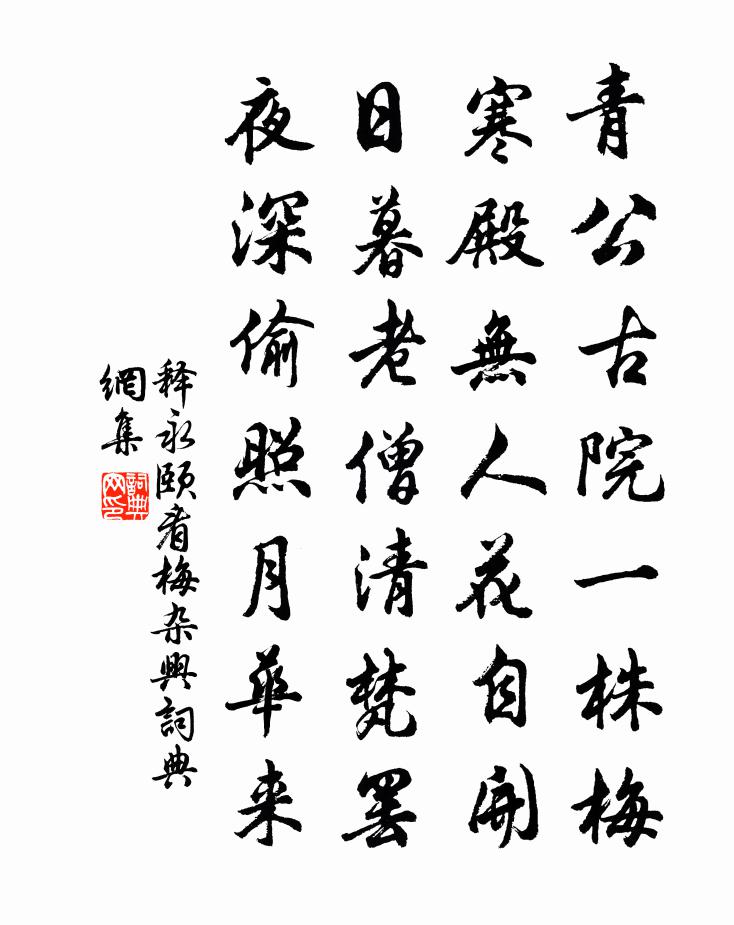 青公古院一株梅
寒殿無人花自開
日暮老僧清梵罢
夜深偷照月華来
释永颐看梅杂興詞典
網集
詞典网印